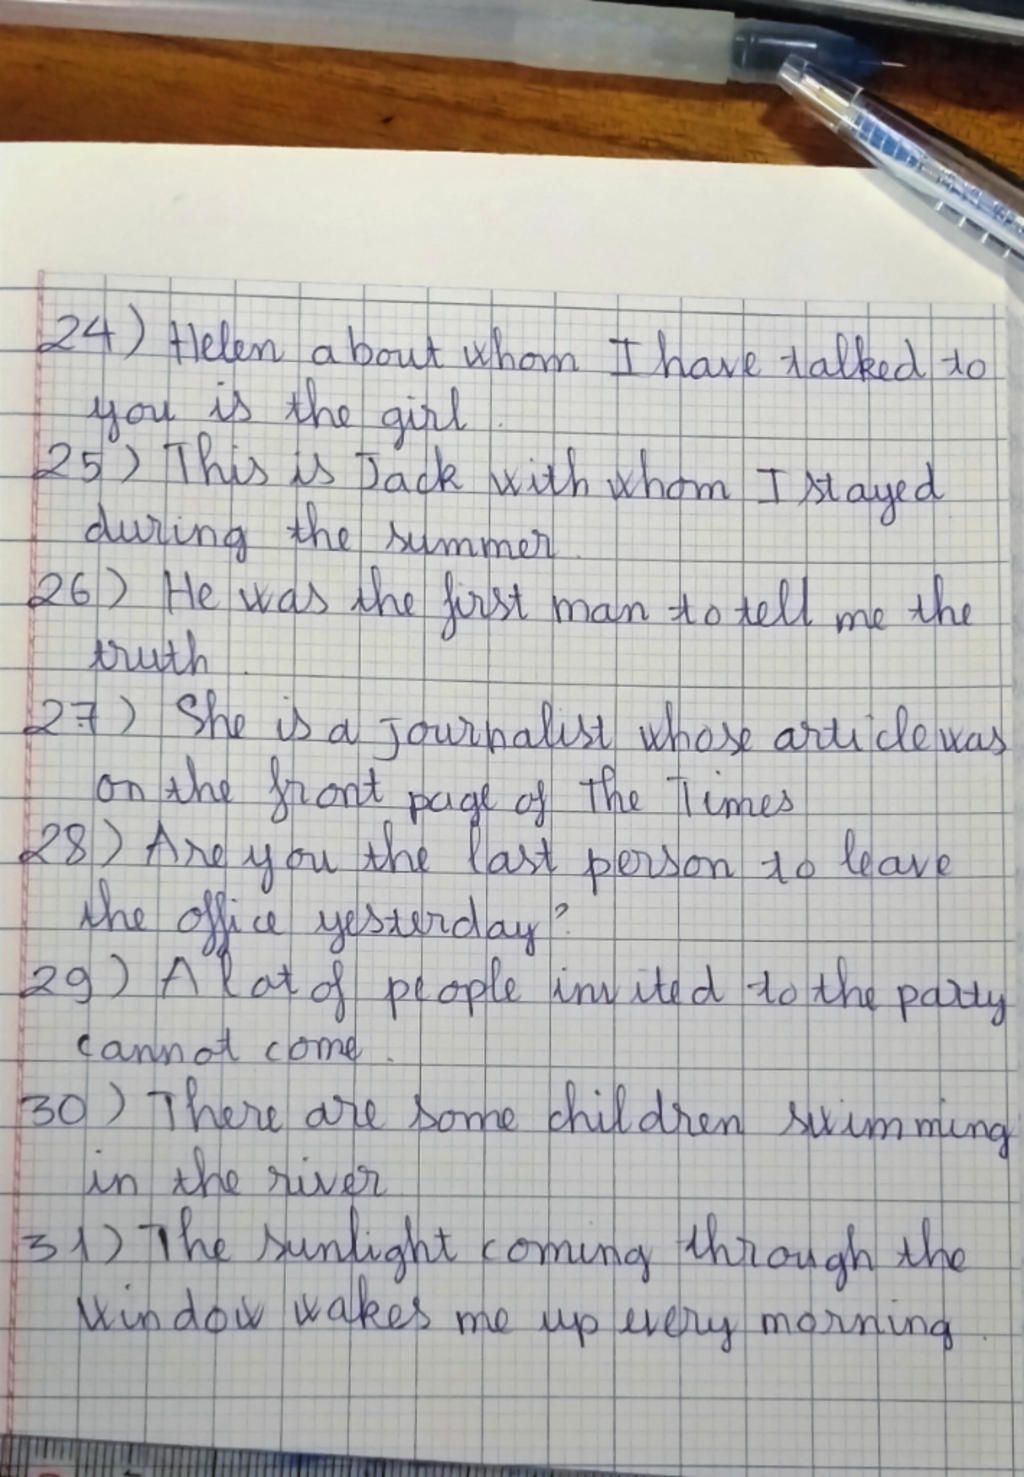 24) Helen about whom I have talked to
you is the girl.
25) This is Jack with whom I stayed
during the summer.
26) He was the first man to tell me the
truth.
27) She is a journalist whose article was
on the front page of The Times
28) Are you the last person to leave
the office yesterday?
29) A lot of people invited to the party
cannot come.
30) There are some children swimming
in the river
31) The sunlight coming through the
window wakes me up every morning.